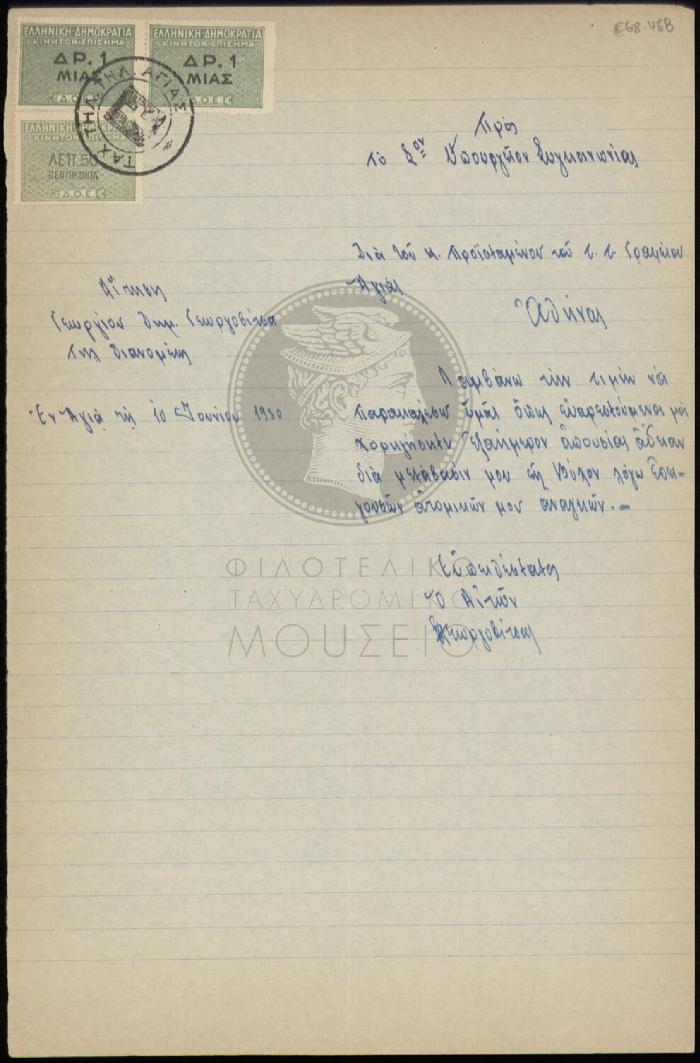 ΕΛΛΗΝΙΚΗ·ΔΗΜΟΚΡΑΤΙΑ
ΚΙΝΗΤΟΝ·ΕΠΙΣΗΜΑ
ΔΡ.1
ΜΙΑΣ
Δ.Ο.Ε.
ΕΛΛΗΝΙΚΗ·ΔΗΜΟΚΡΑΤΙΑ
ΚΙΝΗΤΟΝ·ΕΠΙΣΗΜΑ
ΔΡ.1
ΜΙΑΣ
Δ.Ο.Ε.
ΕΛΛΗΝΙΚΗ·ΔΗΜΟΚΡΑΤΙΑ
ΚΙΝΗΤΟΝ·ΕΠΙΣΗΜΑ
ΛΕΠ.50
ΠΕΝΤΗΚΟΝΤΑ
Δ.Ο.Ε.
ΤΑΧ. ΤΗΛ. ΤΗΛ. ΑΓΙΑΣ
Ε68-46B
Πρὸς
Τὸ Σον Ὑπουργεῖον Συγκοινωνίας
Διὰ τοῦ κ. Προϊσταμένου τοῦ τ.τ. Γραφείου
Ἀγιᾶς
Ἀθήνας
Αἴτησις
Γεωργίου Δημ. Γεωργοβίτσα
Της διανομέως
Ἐν Ἀγιᾷ τῇ 10 Ἰουνίου 1930
Λαμβάνω τὴν τιμὴν νὰ
παρακαλέσω ὑμᾶς ὅπως εὐαρεστούμενοι μοὶ
χορηγήσητε ἑξαήμερον ἀπουσίας ἄδειαν
διὰ μετάβασίν μου εἰς Βόλον λόγῳ ἐπει-
γουσῶν ἀτομικῶν μου ἀναγκῶν.-
Εὐπειθέστατος
Ὁ Αἰτῶν
Γεωργοβίτσας
ΦΙΛΟΤΕΛΙΚΟ
ΤΑΧΥΔΡΟΜΙΚΟ
ΜΟΥΣΕΙΟ